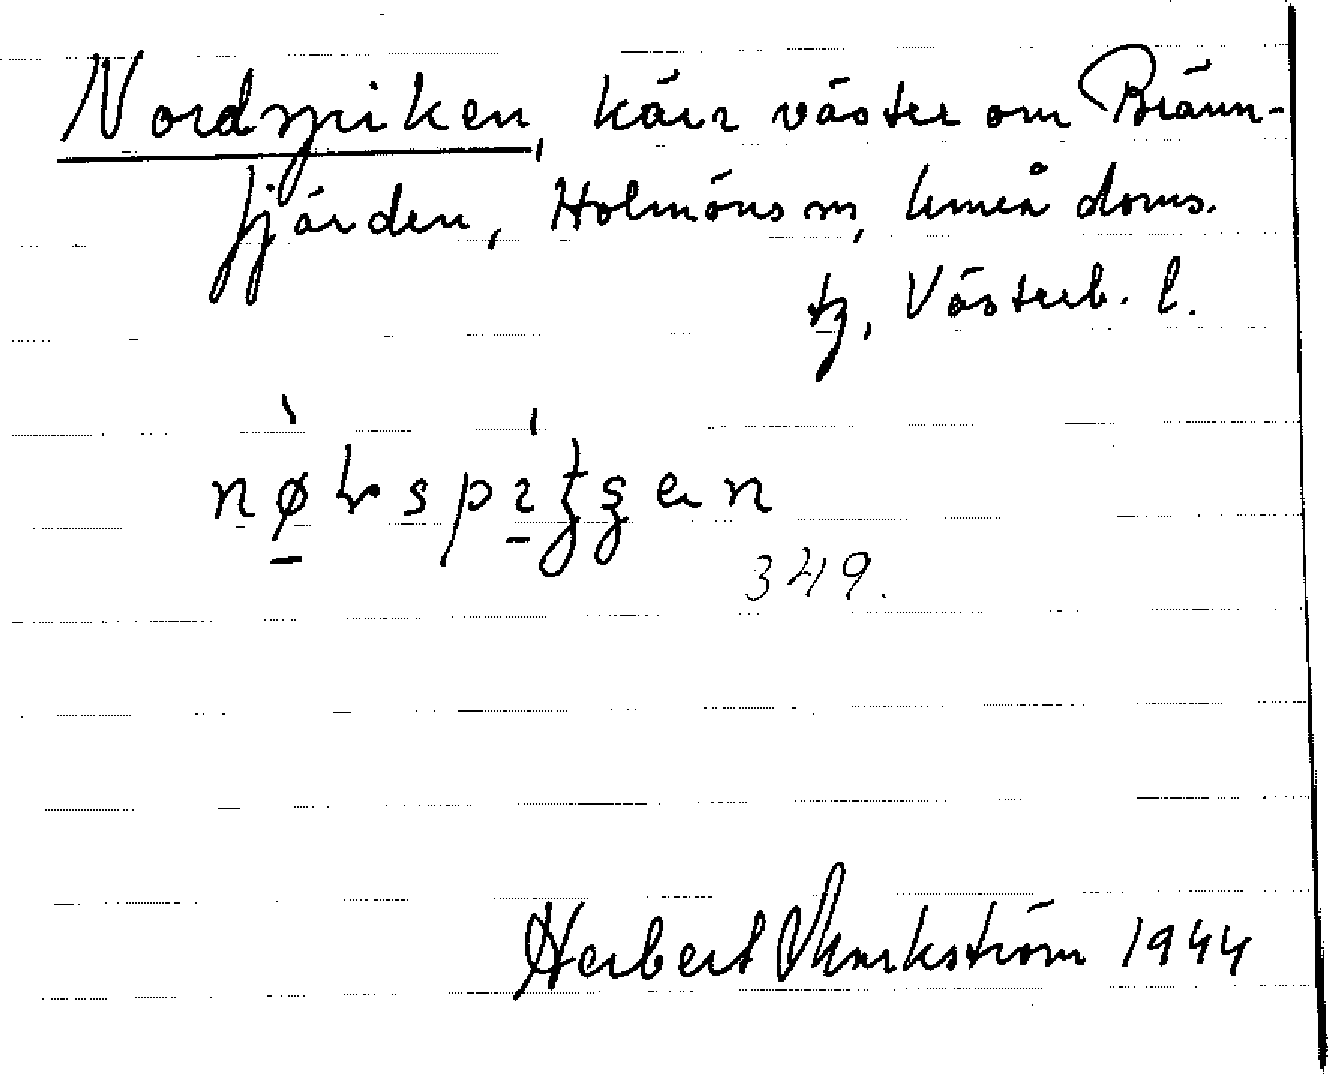 Nordspiken, kärr väster om Bränn-
fjärden, Holmöns sn, Umeå doms.
tg, Västerb. l.
349.
Herbert Markström 1944